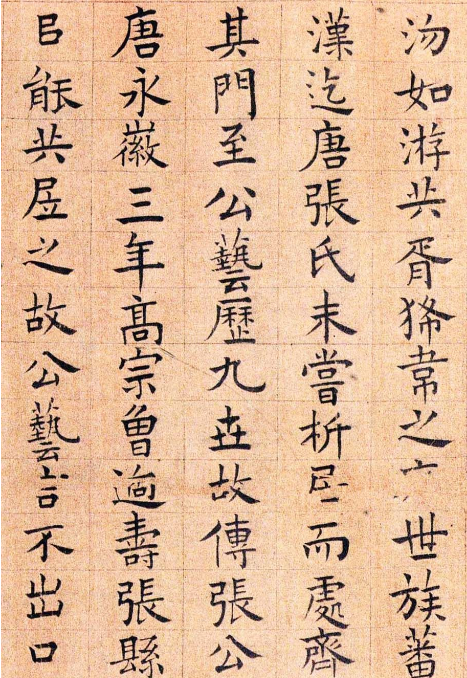 沕如游共胥狶韋之世族蕃
漢迄唐張氏未嘗析居而處齊
其門至公藝歷九世故傳張公
唐永徽三年髙宗曾過壽張縣
㠯能共居之故公藝言不出口